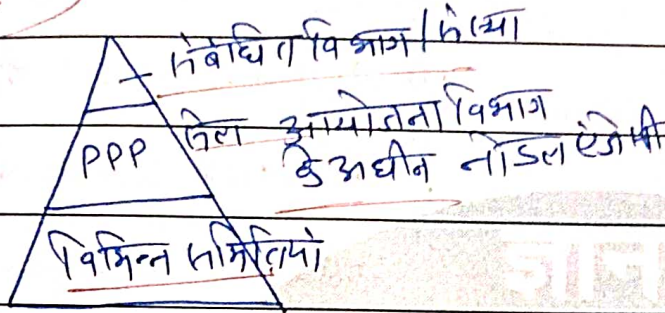 संबंधित विभाग / संस्था
PPP वित्त आयोजना विभाग
के अधीन नोडल एजेंसी
विभिन्न समितियां
ज्ञान